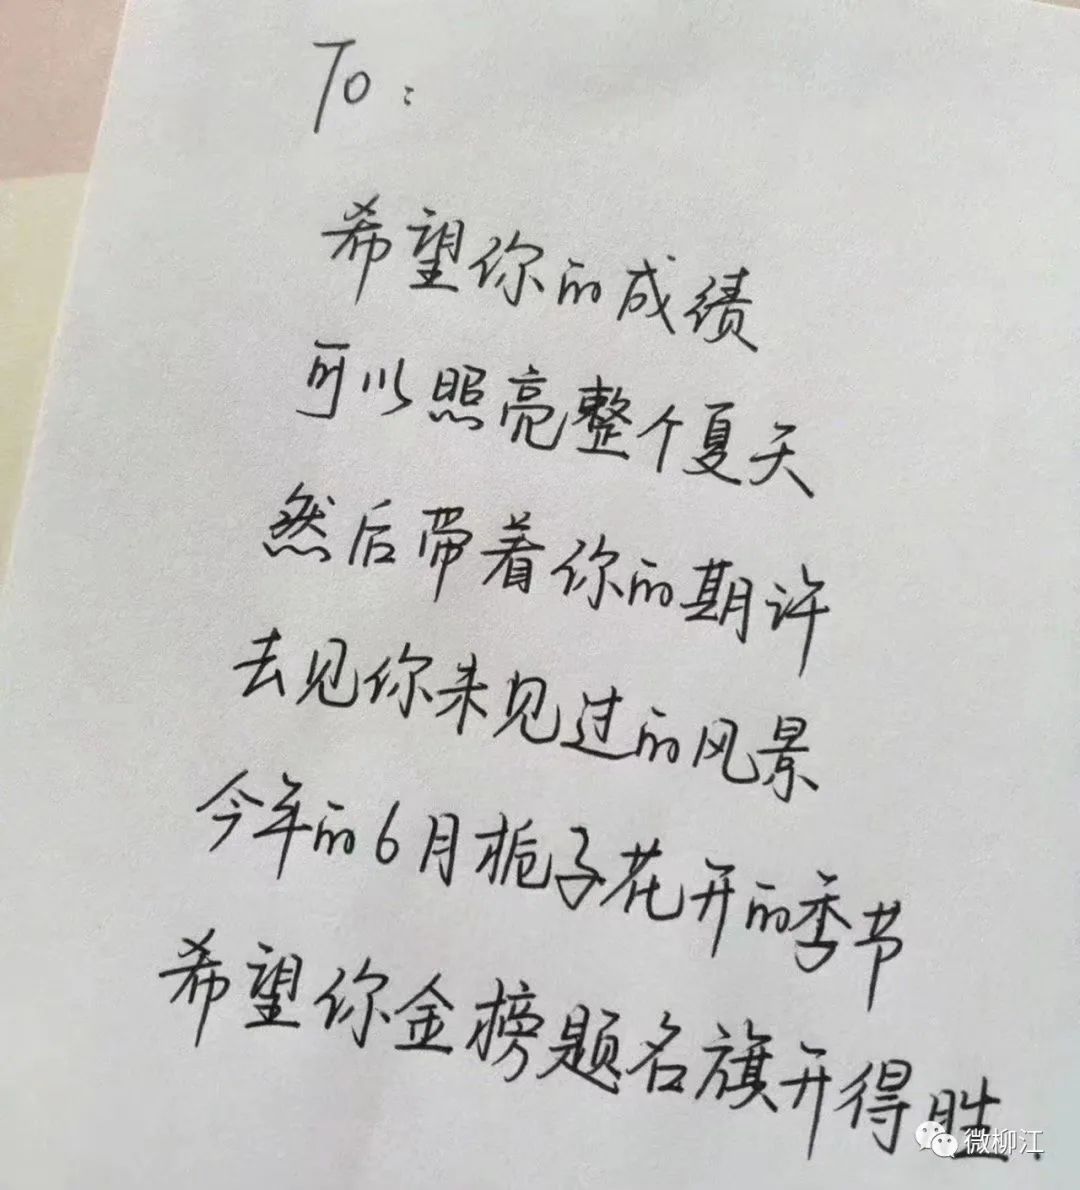 To:
希望你的成绩
可以照亮整个夏天
然后带着你的期许
去见你未见过的风景
今年的6月栀子花开的季节
希望你金榜题名旗开得胜.
微柳江